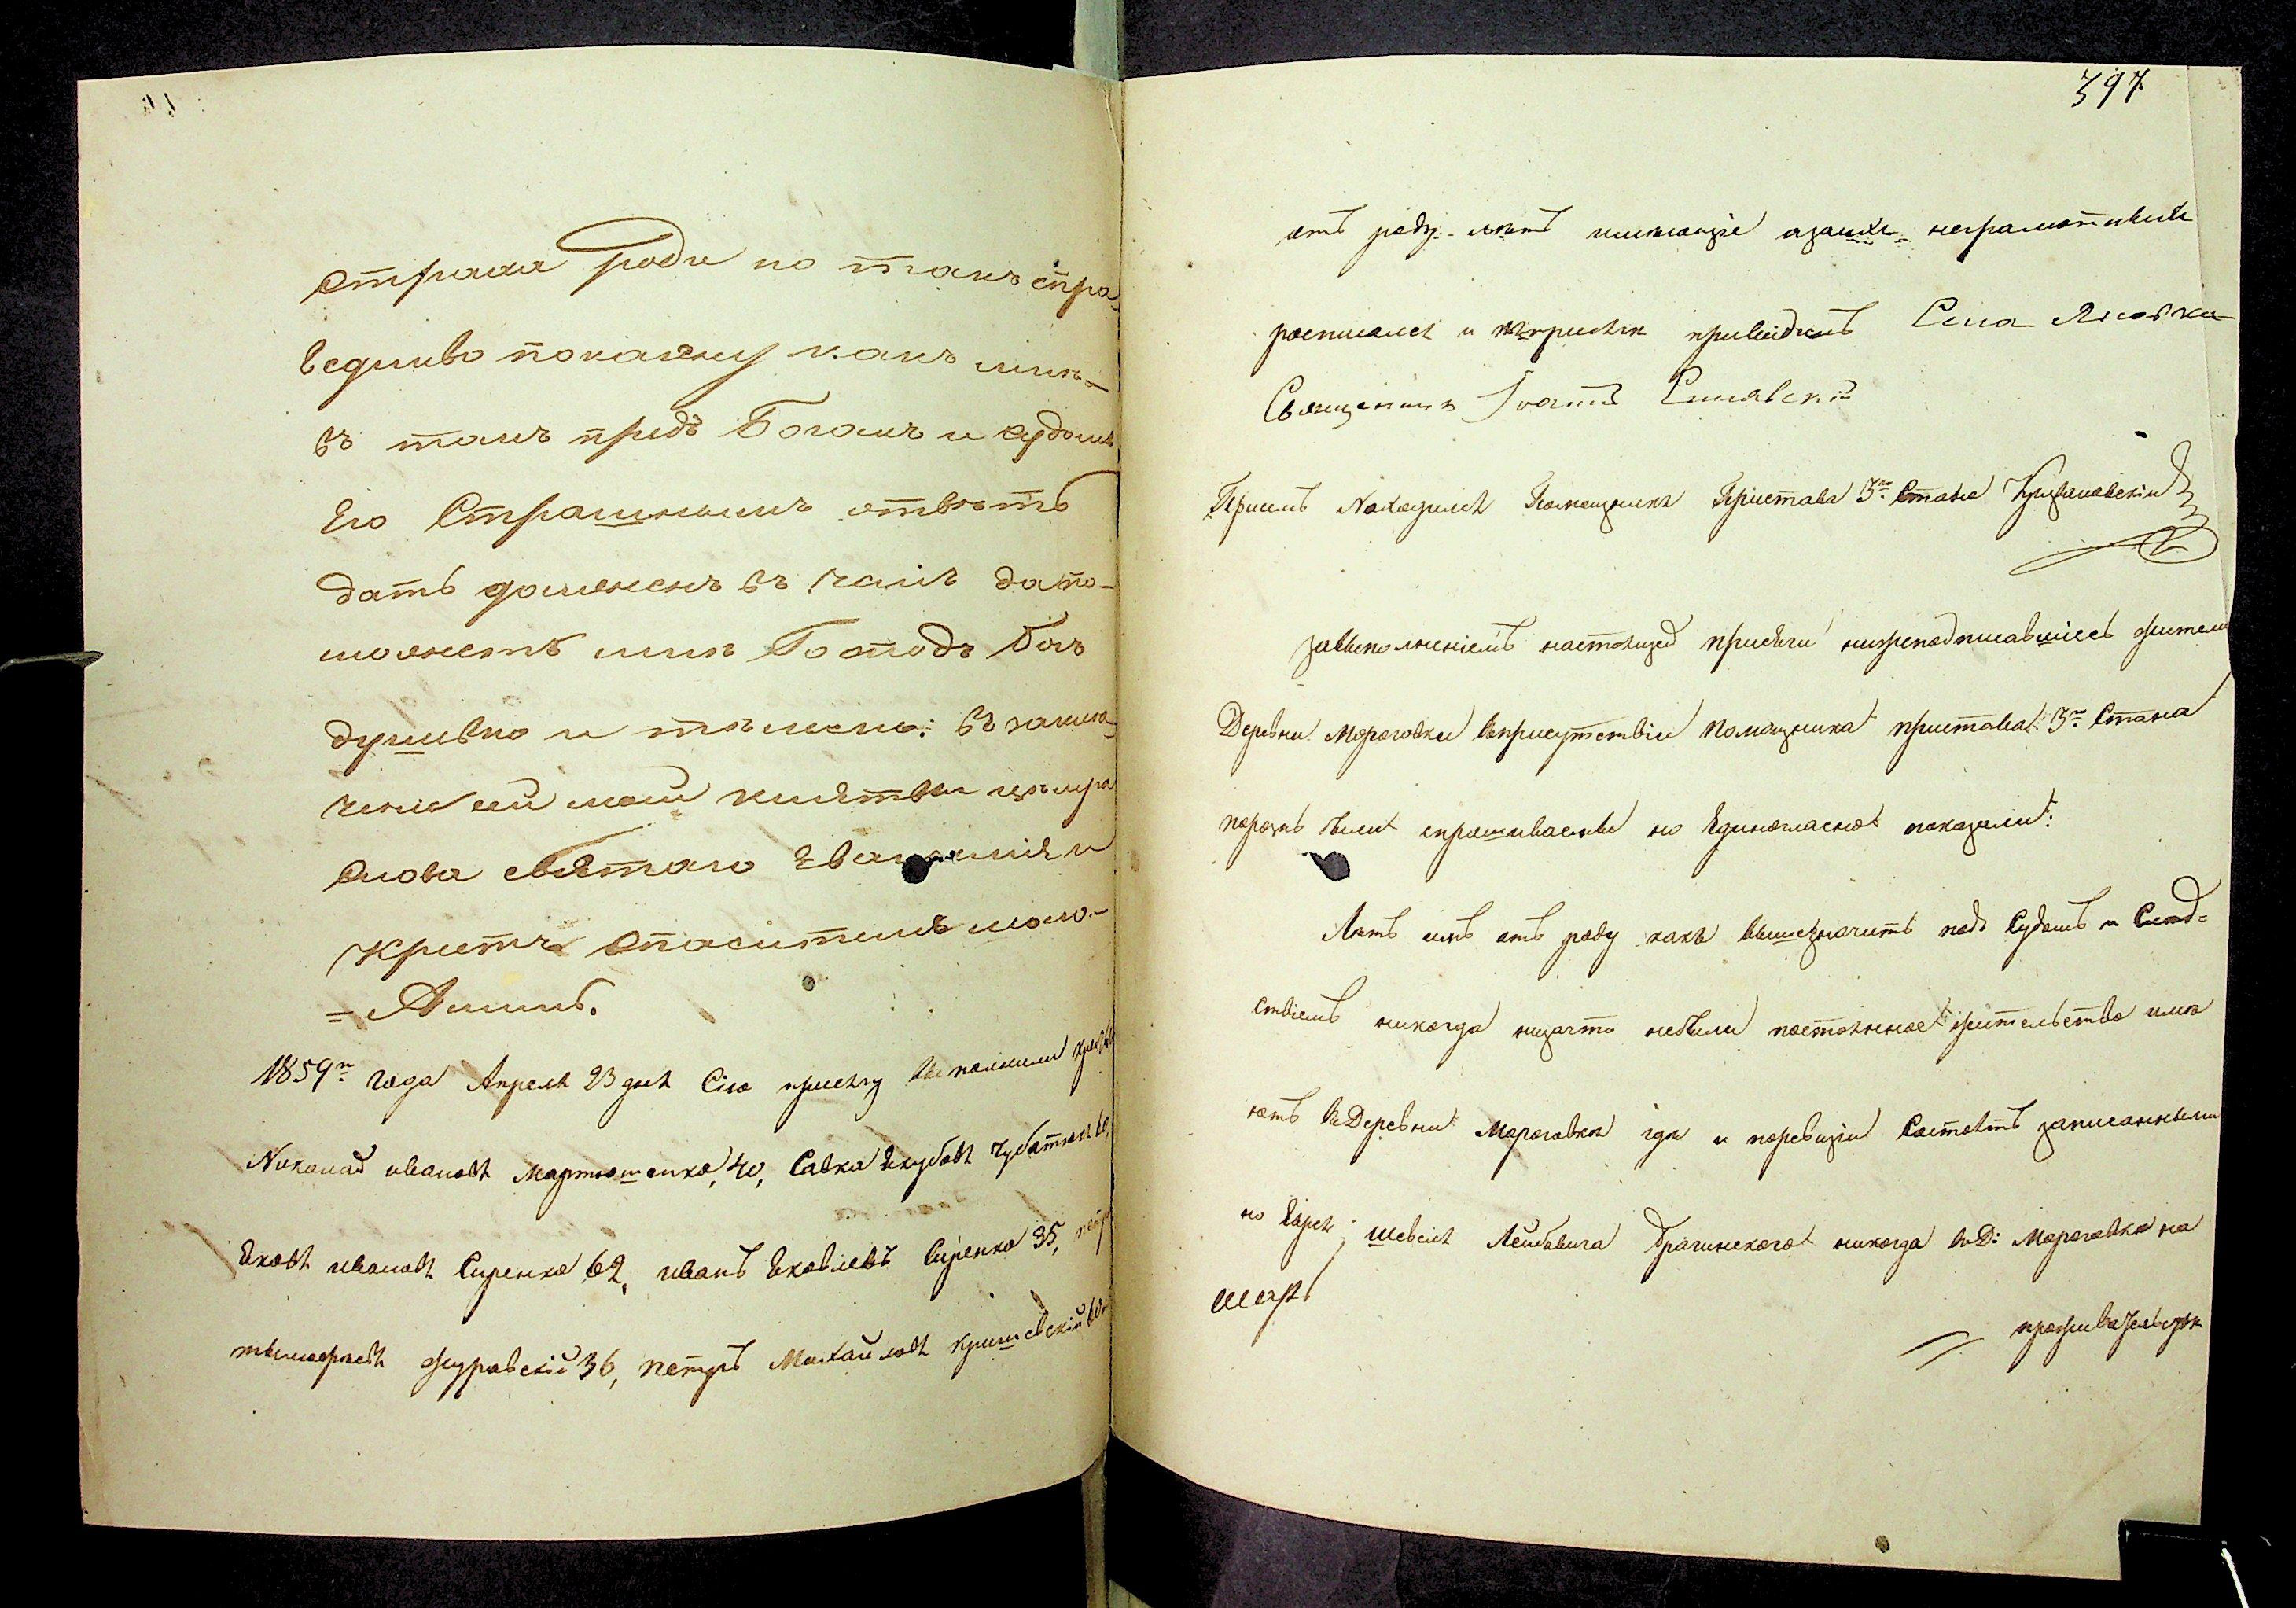 страха ради но такъ спра-
ведливо покажу какъ мнѣ-
въ томъ предъ Богомъ и судомъ
Его Страшнымъ отвѣтъ
дать долженъ въ чемъ да по-
можетъ мнѣ Господь Богъ
душевно и тѣлесно: въ заклю-
ченіе сей моей клятвы цѣлую
слова святаго Евангелія и
крестъ спасителя моего.-
=Аминь.
1859го года Апреля 23 дня Сію присягу выполнили
Николай ивановъ Мартюшенко, 40, Савка Якубовъ
Яковъ ивановъ Сиренко 62, иванъ Яковлевъ Сиренко 35,
тымофѣевъ журавскій 36, петръ Михайловъ
397
отъ роду лѣтъ имѣющіе азаихъ неграмотныхъ
росписался и къприсягѣ приводилъ Села
Священникъ Іоаннъ
Присемъ Находился Помощникъ Пристава 3го Стана
завыполненіемъ настоящей присяги нижеподписавшіесь жители
Деревни Мороговки въприсутствіи помощника пристава 3го Стана
порознь были спрашиваемы но Единогласно показали:
Лѣтъ имъ отъ роду какъ вышезначитъ подъ Судомъ и Слѣд=
ствіемъ никогда низачто небыли постоянное жительство имѣ
ютъ въДеревни Мороговки гдѣ и поревизіи Состоятъ записанными
но Еврея Шевеля Лейбовича Брагинскаго никогда въД: Мороговки на

проживательствѣ